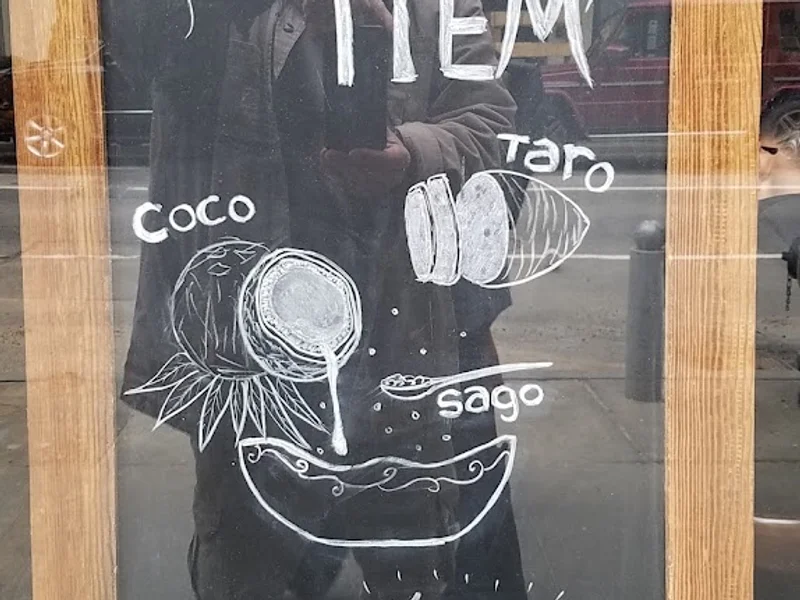 ITEM
Taro
Coco
Sago